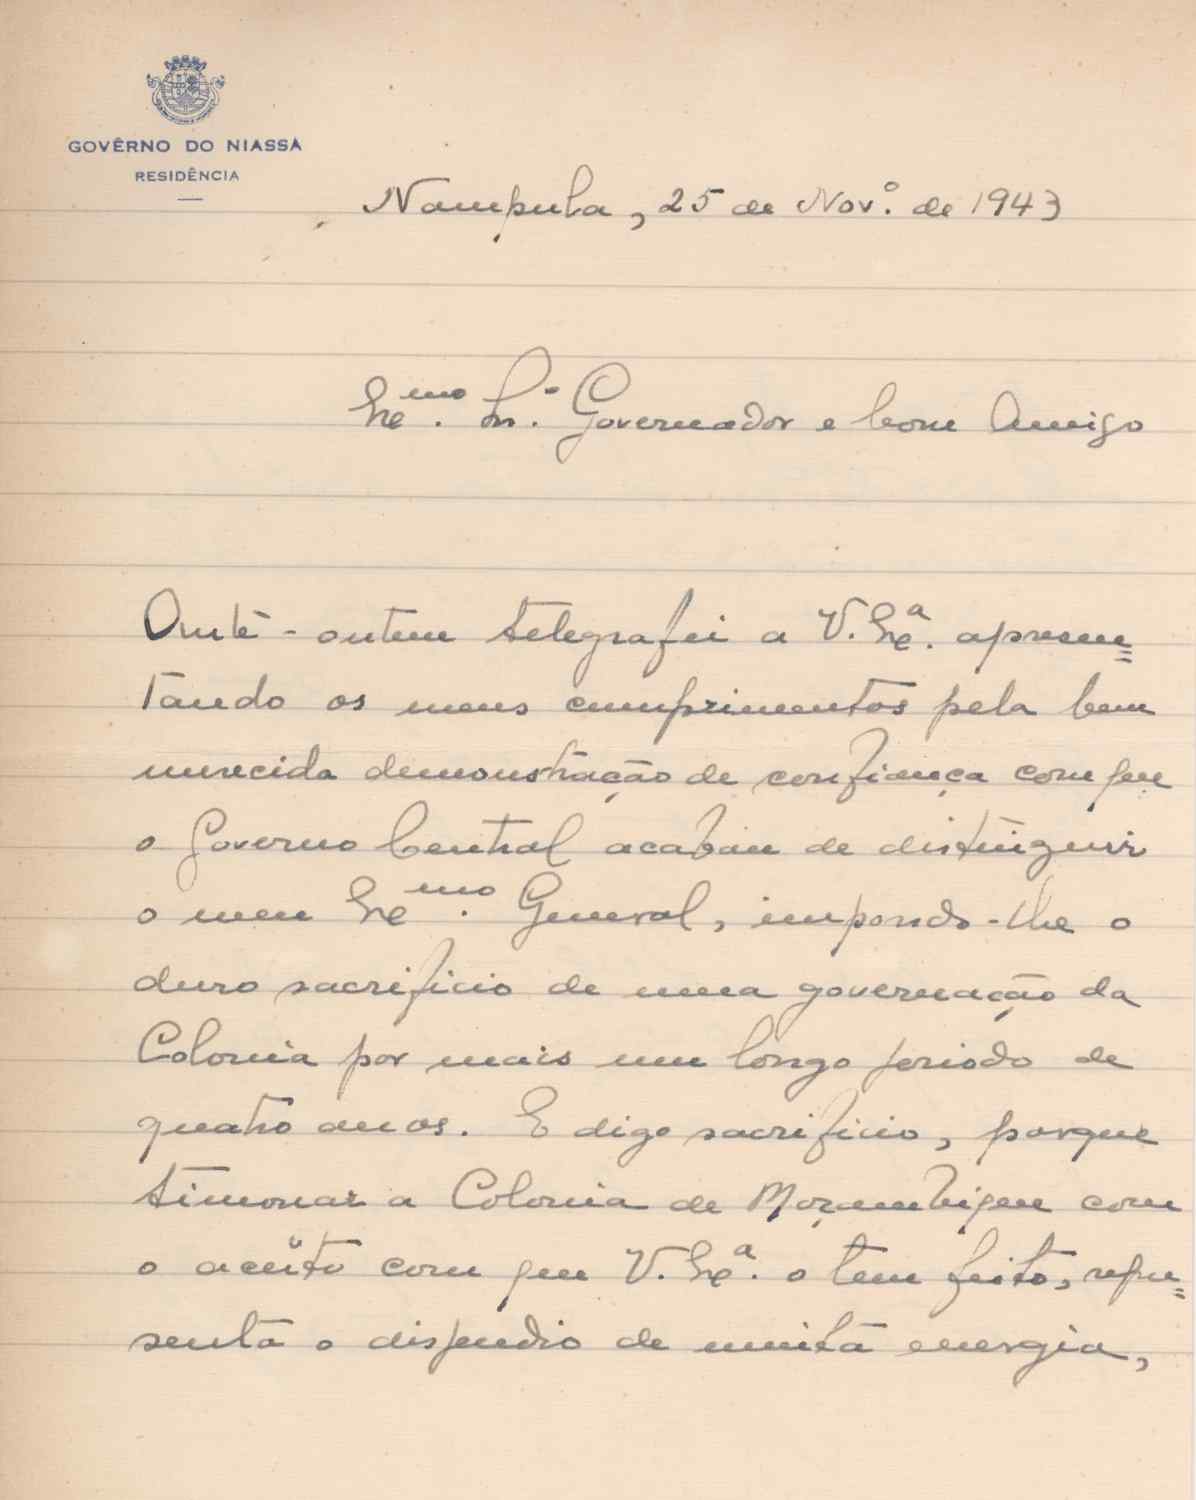 GOVÊRNO DO NIASSA
RESIDÊNCIA
Nampula, 25 de Nov.º de 1943
Exe.mo Sn.r Governador e bom Amigo
Ante-ontem telegrafei a V. Exe.a apresen=
tando os meus cumprimentos pela bem
merecida demonstração de confiança com que
o Governo Central acabou de distinguir
o meu Exe.mo General, impondo-lhe o
duro sacrificio de uma governação da
Colonia por mais um longo periodo de
quatro anos. E digo sacrificio, porque
timonar a Colonia de Moçambique com
o acêrto com que V. Exe.a o tem feito, repre=
senta o dispendio de muita energia,